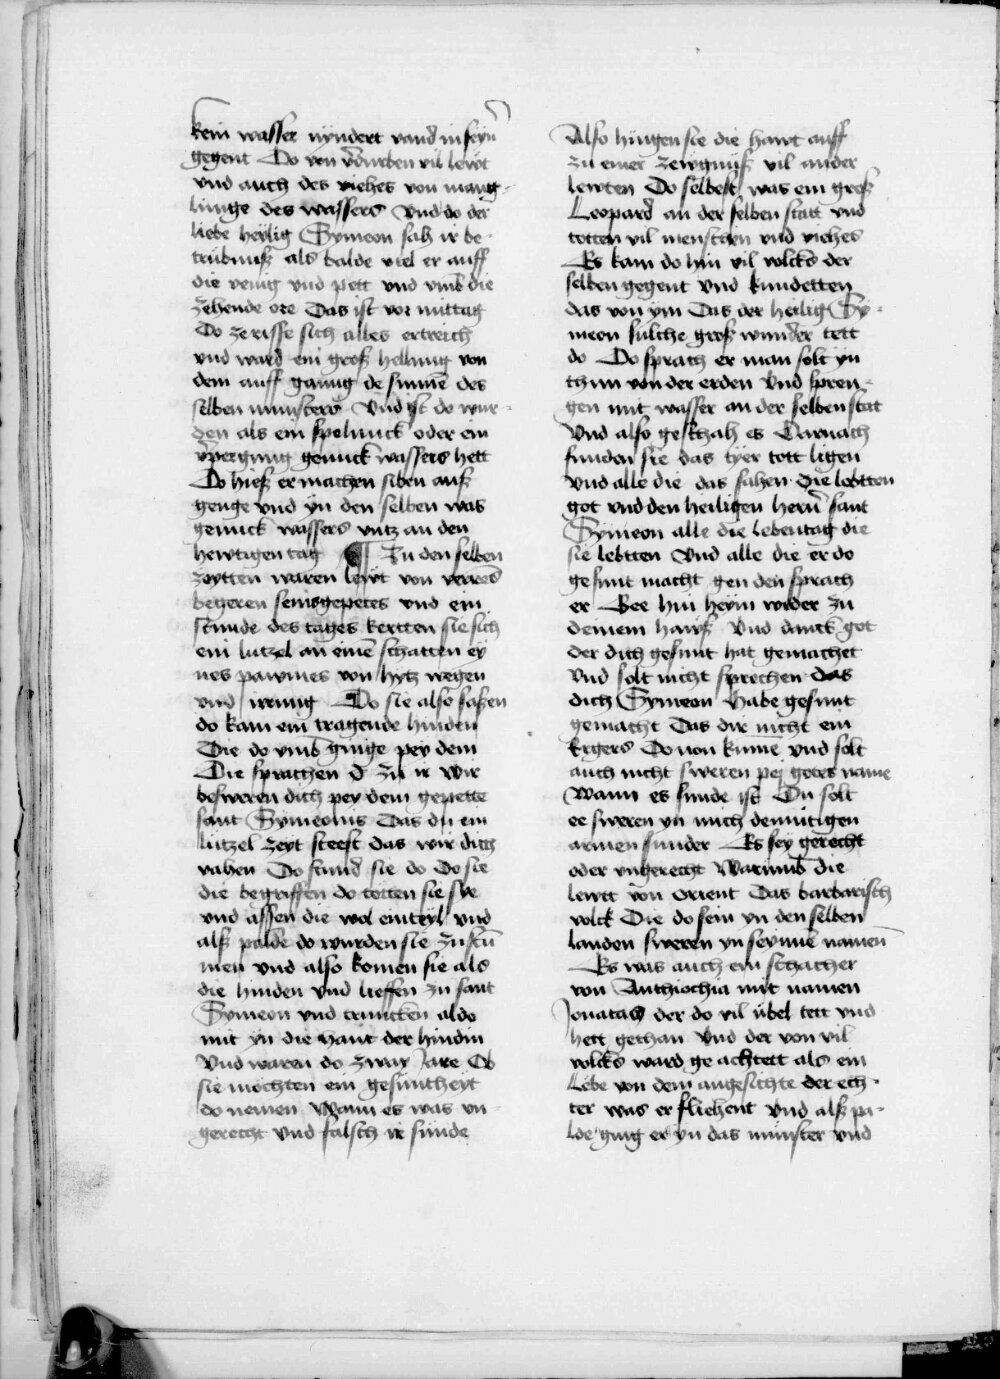 kein wasser nyndert vand in seyn̄
gegent Do von v̄durben vil lewt
vnd auch des viehes von mang-
lunge des wassers Vnd do der
liebe heylig Symeon sah ir be-
trubnuß als balde viel er auff
die venig vnd pett vnd vmb die
zehende ore Das ist vor mittag
Do zerisse sich alles ertreich
vnd ward ein groß hellung von
dem auff gaung de sinnē des
selben munsters Vnd ist do wur-
den als ein spelunck oder ein
v̄pergung genuck wassers hett
Do hieß er machen siben auß
genge vnd yn den selben was
genuck wassers vntz an den
hewtigen tag ¶ Zu den selben
zeytten waren lewt von verres
begeren seins gepetes vnd ein
stunde des tages kertten sie sich
ein lutzel an einē schatten ey
nes pawmes von hytz wegen
vnd irrung Do sie also saßen
do kam ein tragende hinden
Die do vmb ginge pey dem
Die sprachen d zu ir Wir
besweren dich pey dem gepette
sant Symeonis Das du ein
lutzel zeyt steest das wir dich
vahen Do stund sie do Do sie
die begriffen do totten sie sye
vnd assen die wol einteyl vnd
alß palde do wurden sie zu stū
men vnd also komen sie als
die hinden vnd lieffen zu sant
Symeon vnd truncken aldo
mit yn die hant der hindin
Vnd waren do zway Jare Ob
sie mochten ein gesuntheyt
do nemen Wann es was vn-
gerecht vnd falsch ir sunde
Also hingen sie die hawt auff
zu einer zewgnuß vil ander
lewten Do selbest was ein groß
Leopard an der selben statt vnd
totten vil menschen vnd viches
Es kam do hin vil volcks der
selben gegent Vnd kundetten
das von ym Das der heilig Sy-
meon sulche groß wunder tett
do Do sprach er man solt yn
thun von der erden Vnd spren-
gen mit wasser an der selben stat
Vnd also geschah es Darnach
funden sie das tyer tott ligen
Vnd alle die das sahen Die lobtten
got vnd den heiligen hern̄ sant
Symeon alle die lebentag die
sie lebtten Vnd alle die er do
gesunt macht gen den sprach
er Gee hin heym wider zu
deinem hawß Vnd danck got
der dich gesunt hat gemachet
Vnd solt nicht sprechen das
dich Symeon Habe gesunt
gemacht Das dir nicht ein
Ergers Do von kume vnd solt
auch nicht sweren pej gotes name
Wann es sunde ist Du solt
ee sweren yn mich demutigen
armen sunder Es sey gerecht
oder vngerecht Warumb die
lewtt von Orient Das barbarisch
volck Die do sein yn den selben
landen sweren yn seynnē namen̄
Es was auch ein schacher
von Anthiochia mit namen
Jonatas der do vil übel tett vnd
hett gethan Vnd der von vil
volcks ward ge achtett als ein
Lebe von dem angesichte der ech-
ter was er fliehent Vnd alß pa-
lde ging er yn das munster vnd